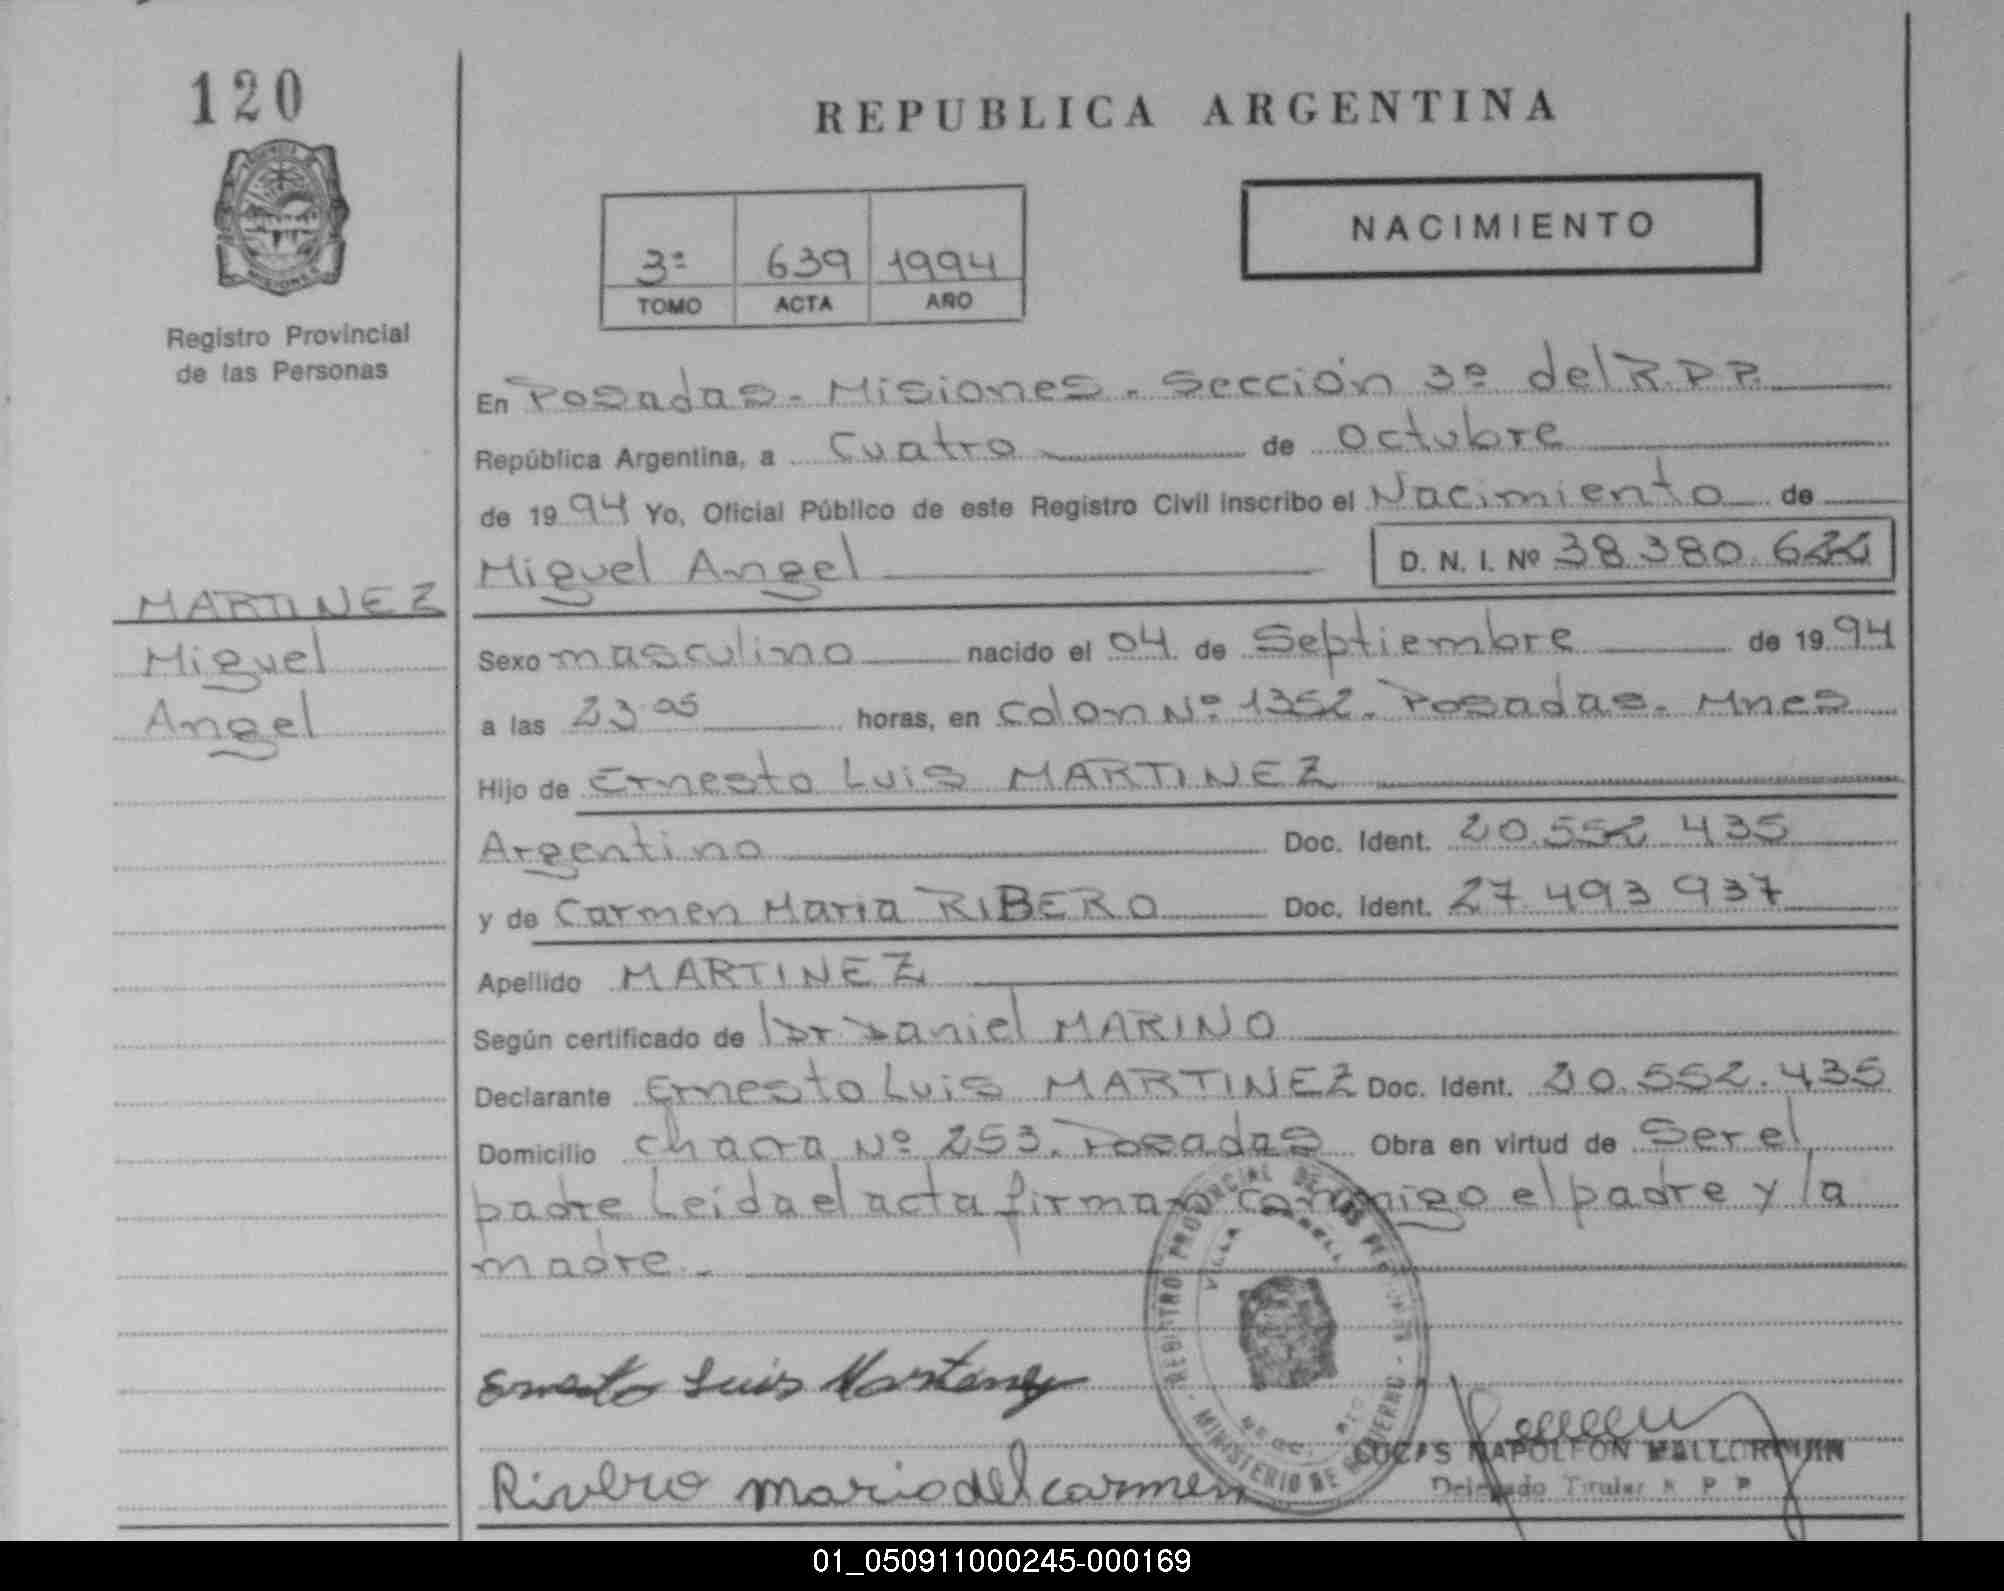 120
REPUBLICA ARGENTINA
NACIMIENTO
3ª 639 1994
TOMO ACTA AÑO
Registro Provincial
de las Personas
En Posadas - Misiones - Sección 3ª del R.P.P.
República Argentina, a Cuatro de octubre
de 1994 Yo, Oficial Público de este Registro Civil inscribo el Nacimiento de
Miguel Angel D. N. I. Nº 38.380.6
MARTINEZ
Miguel
Angel
Sexo masculino nacido el 04 de Septiembre de 1994
a las 23.05 horas, en Colon Nº 1352. Posadas. Mnes
Hijo de Ernesto Luis MARTINEZ
Argentino Doc. Ident. 20.552.435
y de Carmen Maria RIBERO Doc. Ident. 27.493.937
Apellido MARTINEZ
Según certificado de Dr Daniel MARINO
Declarante Ernesto Luis MARTINEZ Doc. Ident. 20.552.435
Domicilio chacra Nº 253. Posadas Obra en virtud de Ser el
padre Leida el acta firman conmigo el padre y la
madre.-
REGISTRO PROVINCIAL DE LAS PERSONAS
VILLA
MINISTERIO DE GOBIERNO
Ernesto Luis Martinez
Rivero maria del carmen
LUCAS NAPOLEON MALLORQUIN
Delegado Titular R P P
01_050911000245-000169